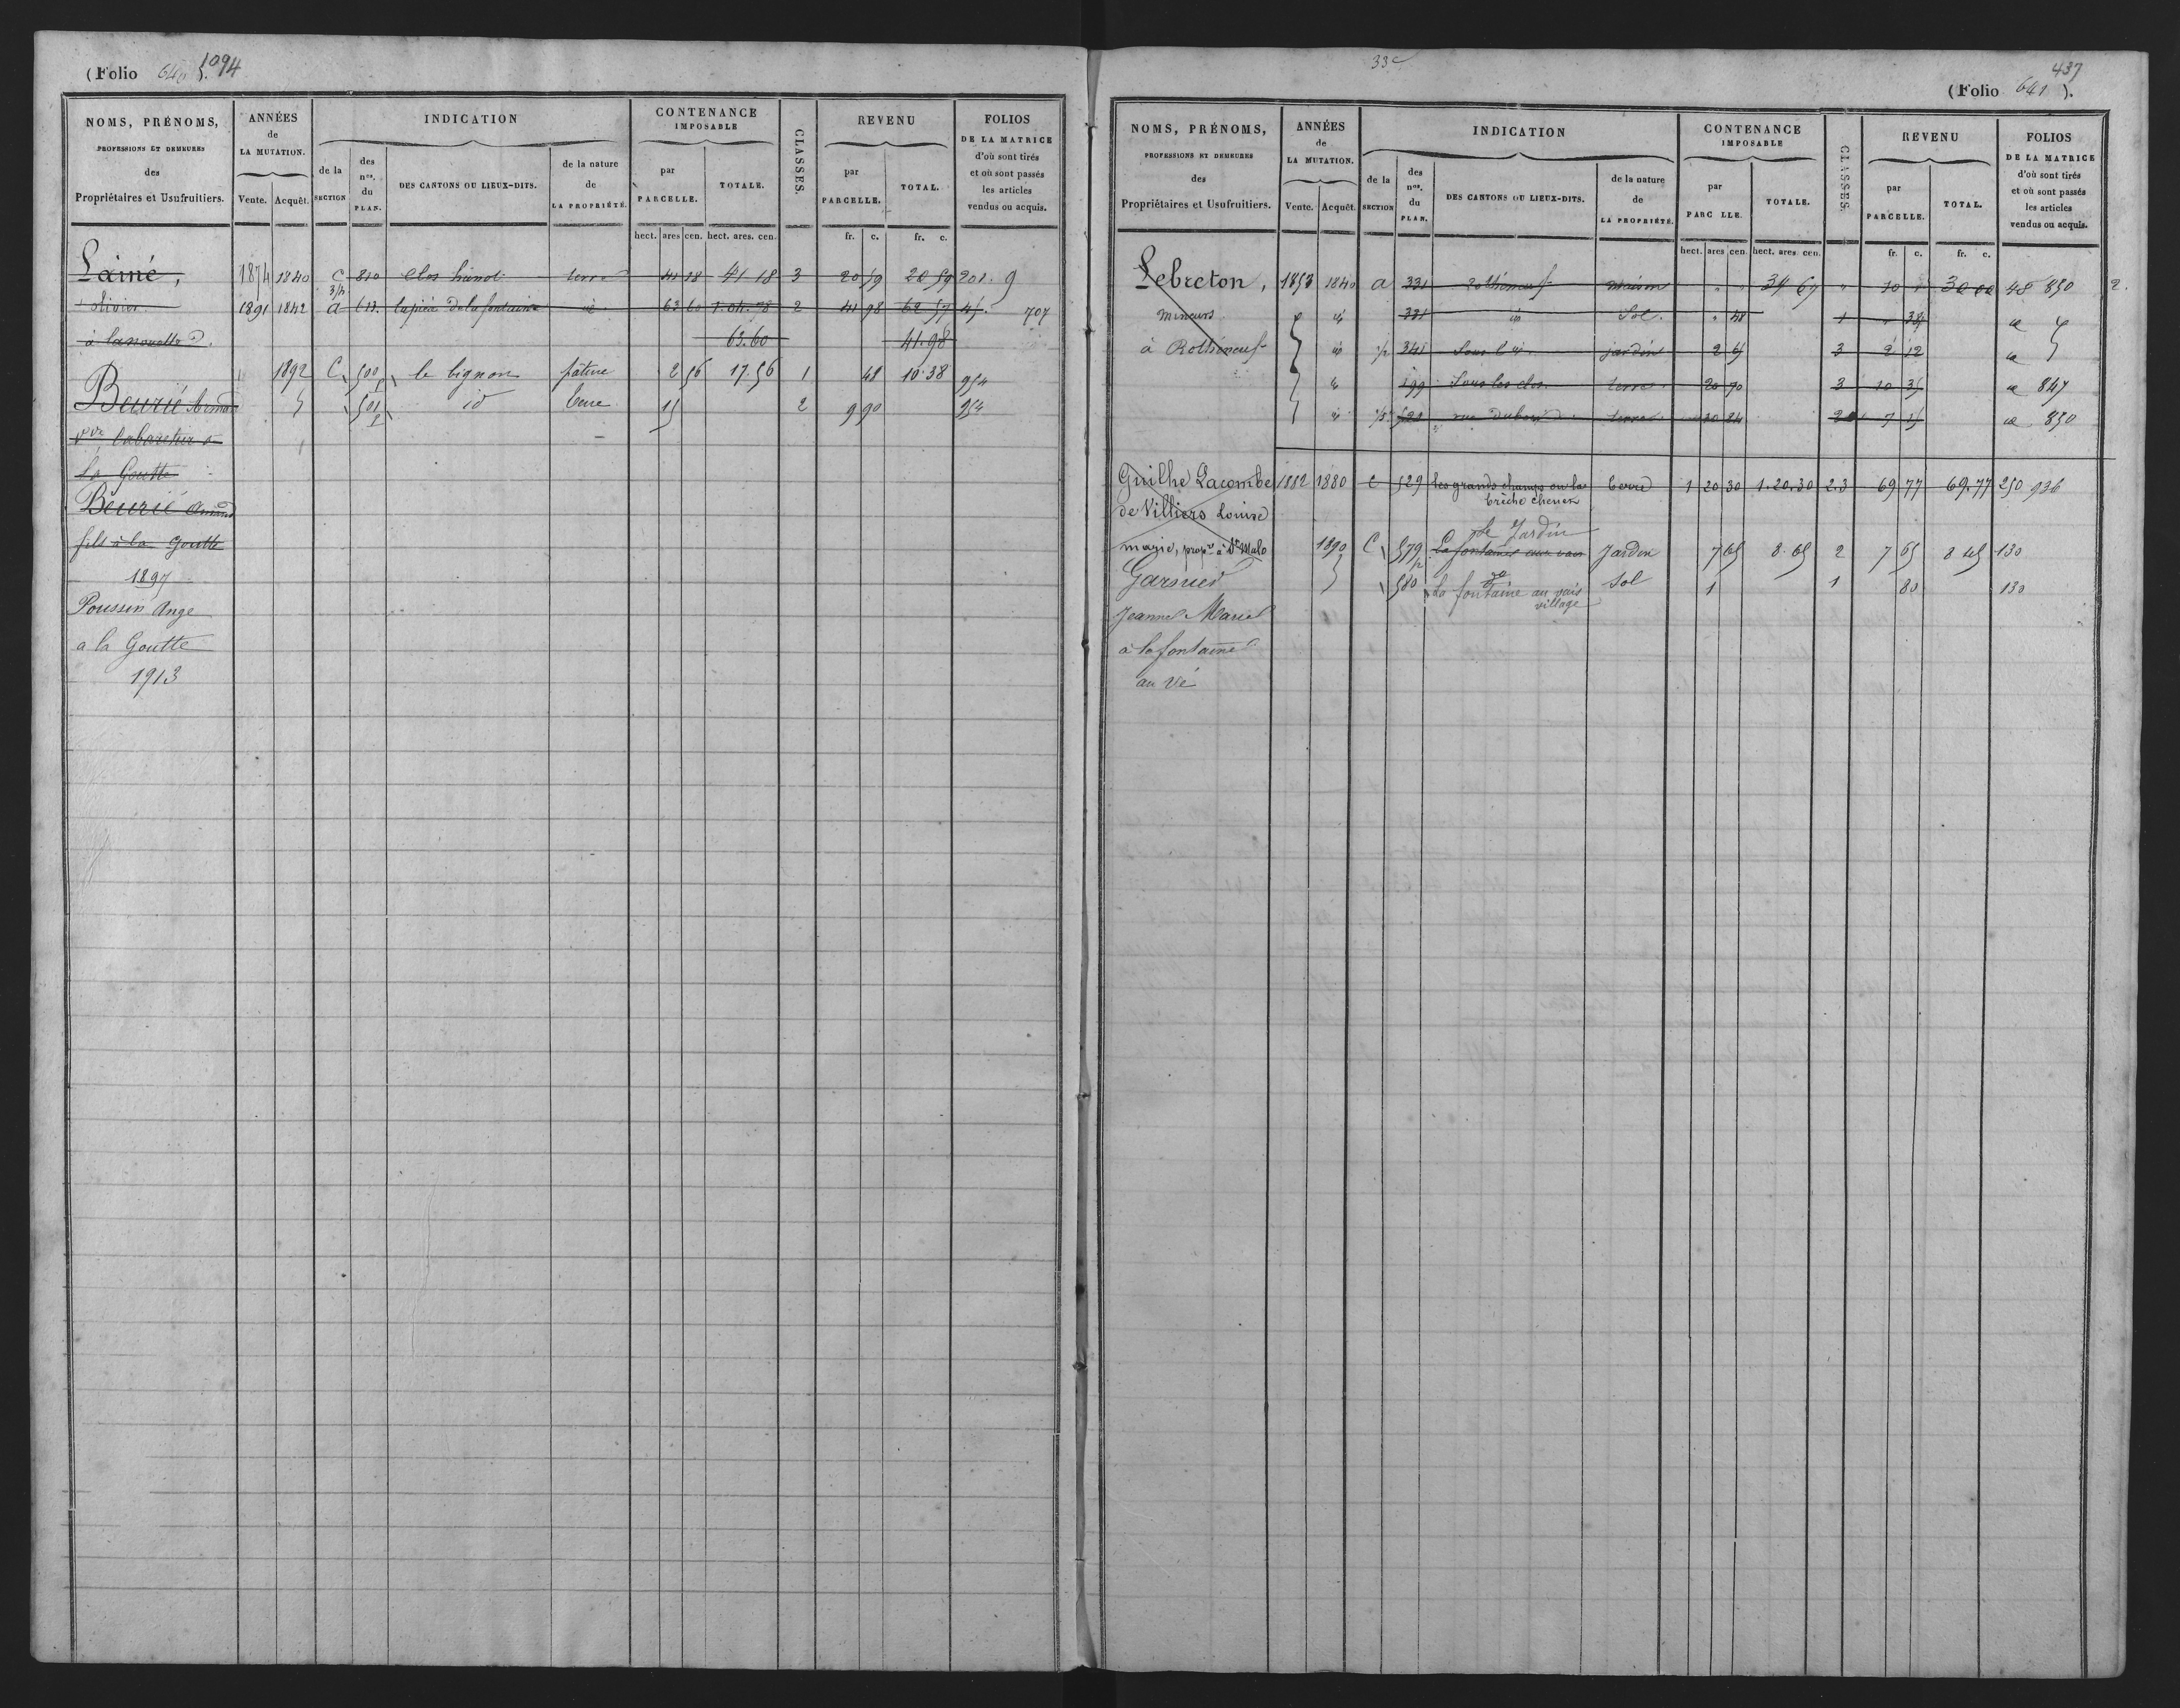 (Folio 640). 1094
NOMS, PRÉNOMS,
PROFESSIONS ET DEMEURES
des
Propriétaires et Usufruitiers.
ANNÉES
de
LA MUTATION.
Vente. Acquêt.
INDICATION
de la
SECTION
des
nos.
du
PLAN.
DES CANTONS OU LIEUX-DITS.
de la nature
de
LA PROPRIÉTÉ.
CONTENANCE
IMPOSABLE
par
PARCELLE.
TOTALE.
CLASSES.
REVENU
par
PARCELLE.
TOTAL.
FOLIOS
DE LA MATRICE
d'où sont tirés
et où sont passés
les articles
vendus ou acquis.
hect. ares cen. hect. ares. cen. fr. c. fr. c.
Lainé, 1874 1840 C 810 Clos terre 41 18 41 18 3 20 59 20 59 201. 9
Olivier 1891 1842 a 613 la pièce de la fontaine id 63 60 1.04.78 2 41 98 62 57 45. 707
à 63.60 41.98
1892 C 500 p le bignon pature 2 56 17.56 1 48 10.38 954
Beurié Armand 501 p id terre 15 2 9 90 954
Vve Cabaretier à
la Goutte
Beurié Armand
fils à la Goutte
1897
Poussin Ange
a la Goutte
1913
33c
437
(Folio 641).
NOMS, PRÉNOMS,
PROFESSIONS ET DEMEURES
des
Propriétaires et Usufruitiers.
ANNÉES
de
LA MUTATION.
Vente. Acquêt.
INDICATION
de la
SECTION
des
nos.
du
PLAN.
DES CANTONS OU LIEUX-DITS.
de la nature
de
LA PROPRIÉTÉ.
CONTENANCE
IMPOSABLE
par
PARC LLE.
TOTALE.
CLASSES.
REVENU
par
PARCELLE.
TOTAL.
FOLIOS
DE LA MATRICE
d'où sont tirés
et où sont passés
les articles
vendus ou acquis.
hect. ares cen. hect. ares. cen. fr. c. fr. c.
Lebreton, 1853 1840 a 331 Rothéneuf maison " " 34 67 " 10 " 30 00 48 850 2.
mineurs id 331 id Sol. " 48 1 " 38
à Rothéneuf id 345 jardin 2 65 3 2 12
id 199 Sous les clos terre 20 70 3 10 35 847
id 520 rue terre 7 15 850
Guilhe Lacombe 1882 1880 C 529 les grands champs ou la terre 1 20 30 1.20.30 2.3 69 77 69.77 250 936
de Villiers Louise
brèche
le Jardin
marie, propre à St Malo 1890 C 579 p La fontaine aux vais Jardin 7 65 8.65 2 7 65 8 45 130
Garnier 580 La fontaine au vais sol 1 1 80 130
village
Jeanne Marie
à la fontaine
au Vé